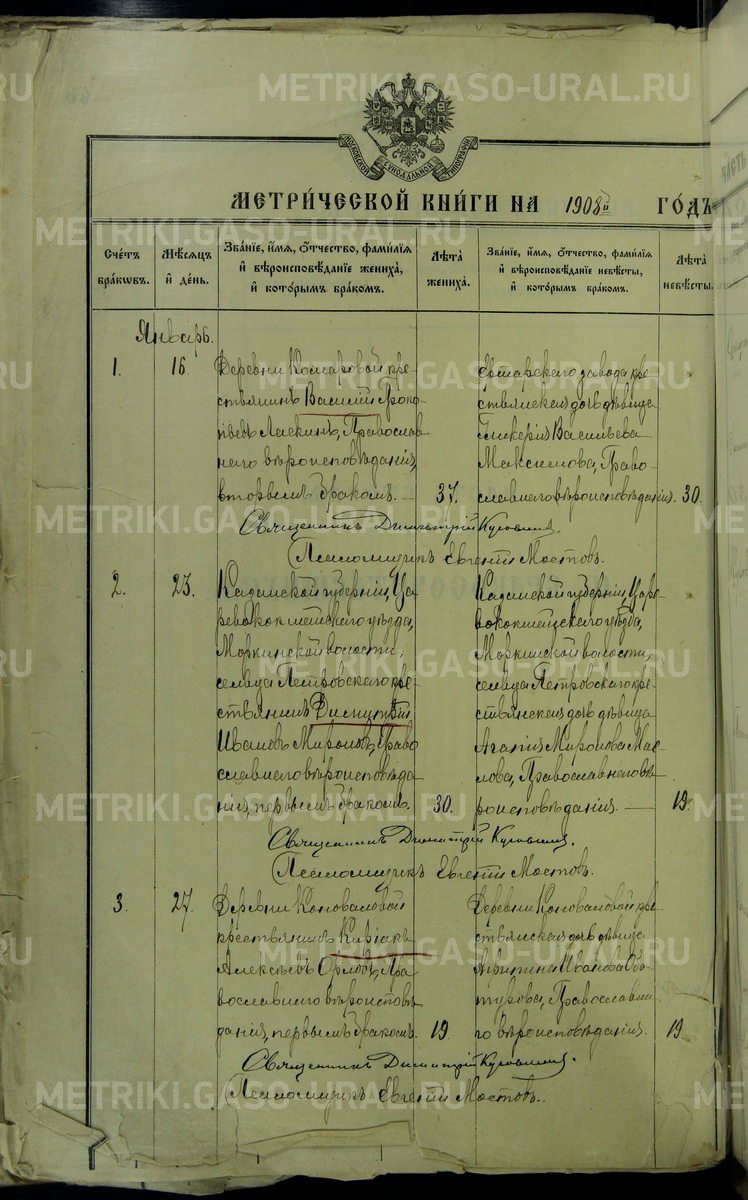 METRIKI.GASO-URAL.RU
МОСКОВСКОЙ СѴНОДАЛЬНОЙ ТИПОГРАФІИ
МЕТРИ́ЧЕСКОЙ КНИ́ГИ НА 1908й ГО́ДЪ
Сче́тъ бра́кωвъ.
Мѣ́сяцъ и҆ де́нь.
Зва́нїе, и҆́мя, ѻ҆́тчество, фами́лїя и҆ вѣроисповѣ́данїе жениха̀, и҆ кото́рымъ бра́комъ.
Лѣ́та жениха̀.
Зва́нїе, и҆́мя, ѻ҆́тчество, фами́лїя и҆ вѣроисповѣ́данїе невѣ́сты, и҆ кото́рымъ бра́комъ.
Лѣ́та невѣ́сты.
Январь.
1. 16
Деревни Комаровой кре-
стьянинъ Василій Проко-
пьевъ Ласкинъ, Православ-
наго вѣроисповѣданія,
вторымъ бракомъ. — 37.
завода кре-
стьянская дочь дѣвица
Гликерія Васильева
Максимова, Право-
славнаго вѣроисповѣданія. 30.
Священникъ Димитрій
Псаломщикъ Евгеній Мостовъ.
2. 23.
Казанской губерніи, Ца-
ревококшайскаго уѣзда,
Моркинской волости,
сельца Петровскаго кре-
стьянинъ Димитрій
Ивановъ Мироновъ, Право-
славнаго вѣроисповѣда-
нія, первымъ бракомъ. 30.
Казанской губерніи, Царе-
вококшайскаго уѣзда,
Моркинской волости,
сельца Петровскаго кре-
стьянская дочь дѣвица
Агапія Миронова
Православнаго вѣ-
роисповѣданія. — 19.
Священникъ Димитрій
Псаломщикъ Евгеній Мостовъ.
3. 27.
Деревни Коноваловой
крестьянинъ Киріакъ
Алексѣевъ Орловъ, Пра-
вославнаго вѣроисповѣ-
данія, первымъ бракомъ. 19
Деревни Коноваловой кре-
стьянская дочь дѣвица
Иванова
Православна-
го вѣроисповѣданія. 19.
Священникъ Димитрій
Псаломщикъ Евгеній Мостовъ.